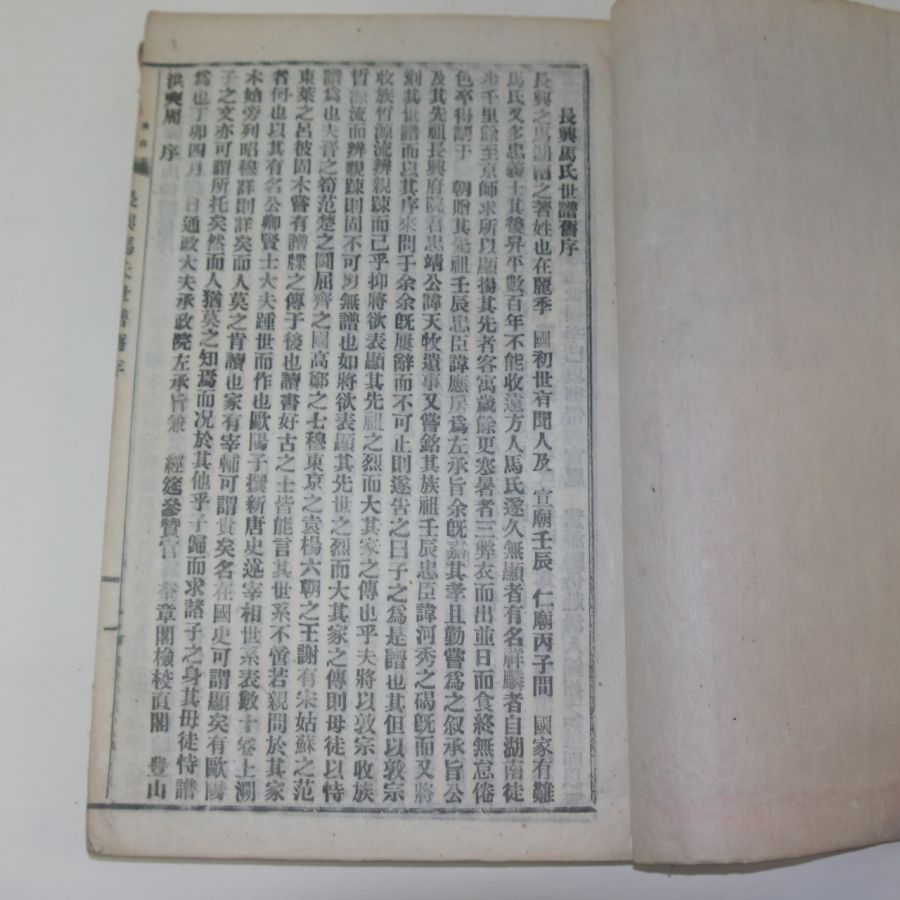 長興馬氏世譜舊序
長興之馬湖南之著姓也在麗季 國初世有聞人及 宣廟壬辰 仁廟丙子間 國家有難
馬氏又多忠義士其後昇平數百年不能收遠方人馬氏遂久無顯者有名祥麟者自湖南徒
步千里餘至京師求所以顯揚其先者客寓歲餘更寒暑者三弊衣而出並日而食終無怠倦
色卒得請于 朝贈其先祖壬辰忠臣諱應房爲左承旨余旣嘉其孝且勤嘗爲之叙承旨公
及其先祖長興府院君忠靖公諱天牧遺事又嘗銘其族祖壬辰忠臣諱河秀之碣旣而又將
刻其世譜而以其序來問于余余旣屢辭而不可止則遂告之曰子之爲是譜也其但以敦宗
收族晢源流辨親踈而已乎抑將欲表顯其先祖之烈而大其家之傳也乎夫將以敦宗收族
晢源流而辨親踈則固不可以無譜也如將欲表顯其先世之烈而大其家之傳則毋徒以恃
譜爲也夫晉之筍范楚之鬪屈齊之國高鄭之七穆東京之袁楊六朝之王謝有宋姑蘇之范
東萊之呂彼固未嘗有譜牒之傳于後也讀書好古之士皆能言其世系不啻若親問於其家
者何也以其有名公卿賢士大夫踵世而作也歐陽子撰新唐史述宰相世系表數十卷上溯
本始旁列昭穆詳則詳矣而人莫之肯讀也家有宰輔可謂貴矣名在國史可謂顯矣有歐陽
子之文亦可謂所托矣然而人猶莫之知焉而况於其他乎子歸而求諸子之身其毋徒恃譜
爲也丁卯四月 日通政大夫承政院左承旨兼 經筵參贊官 奎章閣檢校直閣 豊山
洪奭周 序
長興馬氏世譜舊序 一